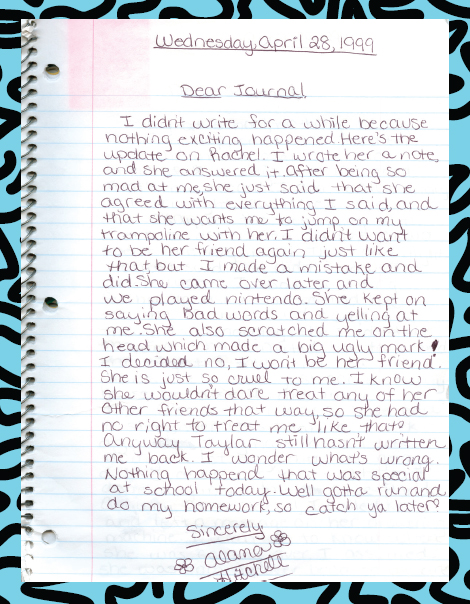 Wednesday, April 28, 1999
Dear Journal,
I didn't write for a while because
nothing exciting happened. Here's the
update on Rachel. I wrote her a note,
and she answered it. After being so
mad at me, she just said that she
agreed with everything I said, and
that she wants me to jump on my
trampoline with her. I didn't want
to be her friend again just like
that, but I made a mistake and
did. She came over later, and
we played nintendo. She kept on
saying bad words and yelling at
me. She also scratched me on the
head which made a big ugly mark!
I decided no, I won't be her friend.
She is just so cruel to me. I know
she wouldn't dare treat any of her
other friends that way, so she had
no right to treat me like that.
Anyway Taylar still hasn't written
me back. I wonder what's wrong.
Nothing happend that was special
at school today. Well gotta run and
do my homework, so catch ya later.
Sincerely
Alana
Hitchell